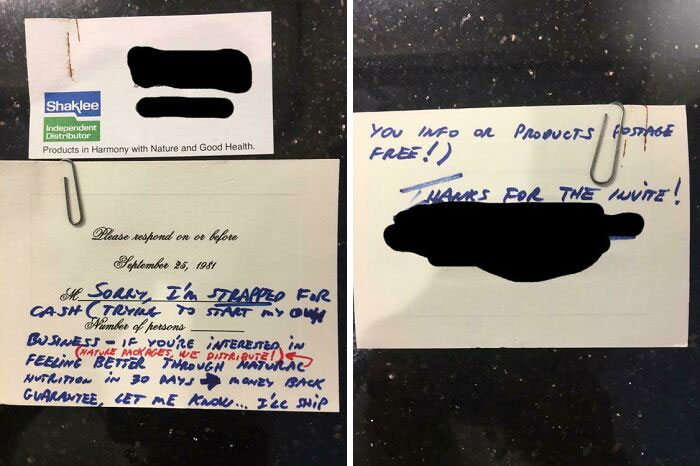 Shaklee
Independent
Distributor
Products in Harmony with Nature and Good Health.
Please respond on or before
September 25, 1981
M SORRY, I'm STRAPPED FOR
CASH (TRYING TO START MY OWN
Number of persons
BUSINESS - IF YOU'RE INTERESTED IN
(NATURE PACKAGES, WE DISTRIBUTE!)
FEELING BETTER THROUGH NATURAL
NUTRITION IN 30 DAYS → MONEY BACK
GUARANTEE, LET ME KNOW... I'LL SHIP
YOU INFO OR PRODUCTS POSTAGE
FREE!)
THANKS FOR THE INVITE!